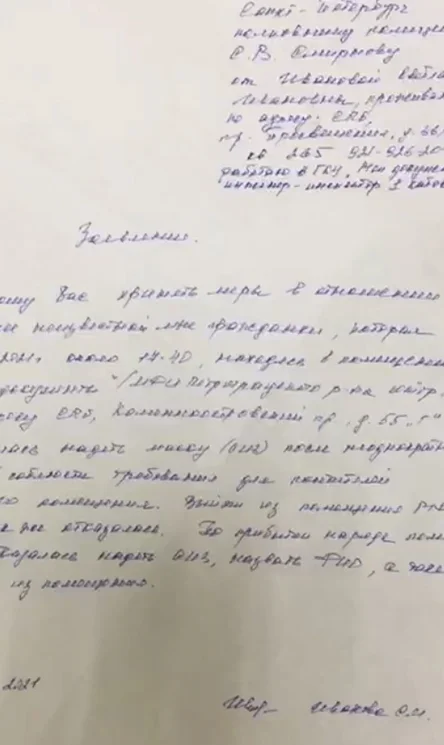 Санкт-Петербург
полковнику полиции
С.В. Смирнову
от Ивановой
Ивановны, прожива
по адресу: СПб,
пр. Просвещения, д. 36/
кв 265 921-926-20
работаю в ГБУ "Мои докуме
инженер-инспектор 1 катего
Заявление.
ошу Вас принять меры в отношении
неизвестной мне гражданки, которая
около 14-40, находясь в помещении
документы" МФЦ Петроградского р-на
СПб, Каменноостровский пр., д. 55, "Г"
лась надеть маску (СИЗ) после неоднократн
соблюсти требования для посетителей
го помещения. Выйти из помещения
же отказалась. По прибытии наряда поли
казалась надеть СИЗ, назвать ФИО, а такж
из помещения.
2021
Иванова С.И.